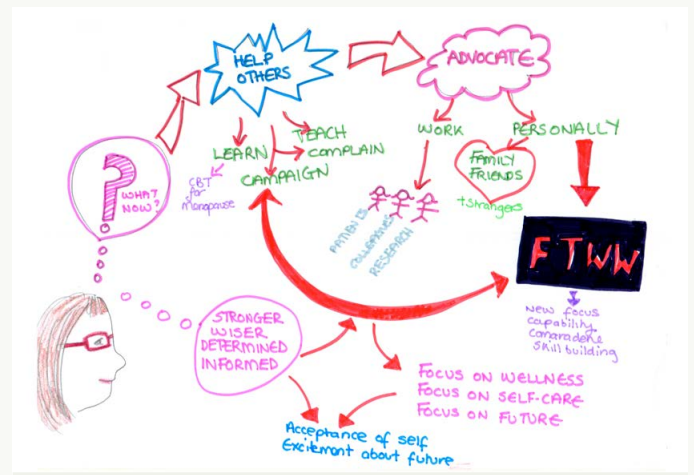 HELP
OTHERS
ADVOCATE
?
WHAT
NOW?
LEARN
TEACH
COMPLAIN
CAMPAIGN
CBT
for
Menopause
WORK
PERSONALLY
FAMILY
FRIENDS
+strangers
PATIENTS
COLLEAGUES
RESEARCH
FTWW
New focus
capability
camaraderie
skill building
STRONGER
WISER
DETERMINED
INFORMED
FOCUS ON WELLNESS
FOCUS ON SELF-CARE
FOCUS ON FUTURE
Acceptance of self
Excitement about future